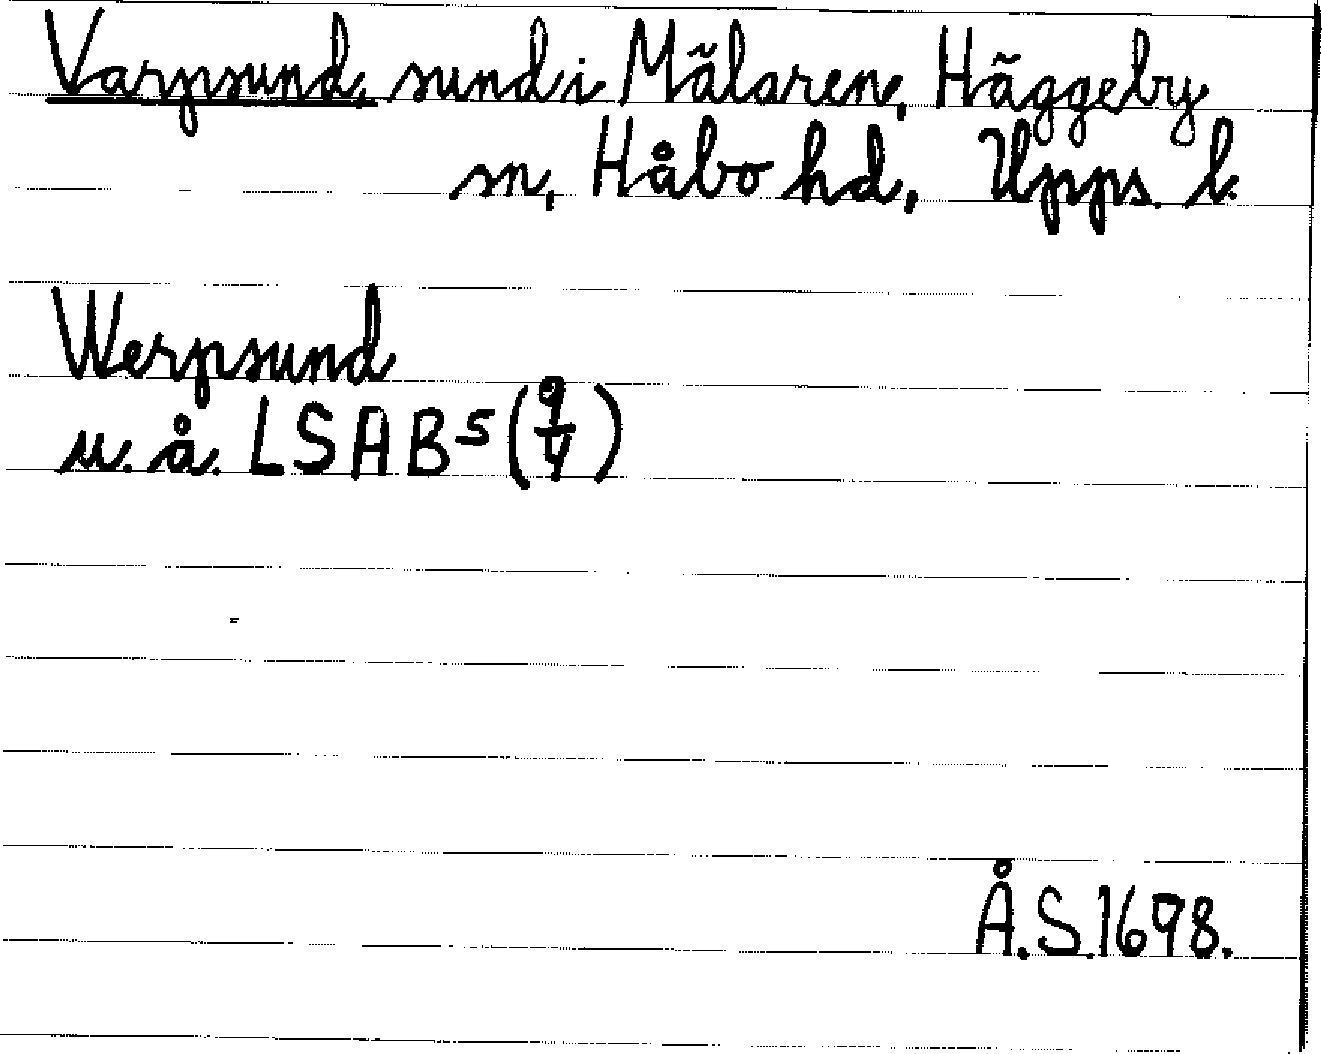 Varpsund, sund i Mälaren, Häggeby
sn, Håbo hd, Upps. l.
Werpsund
u. å. LSAB 5 (9/4)
Å.S. 1698.